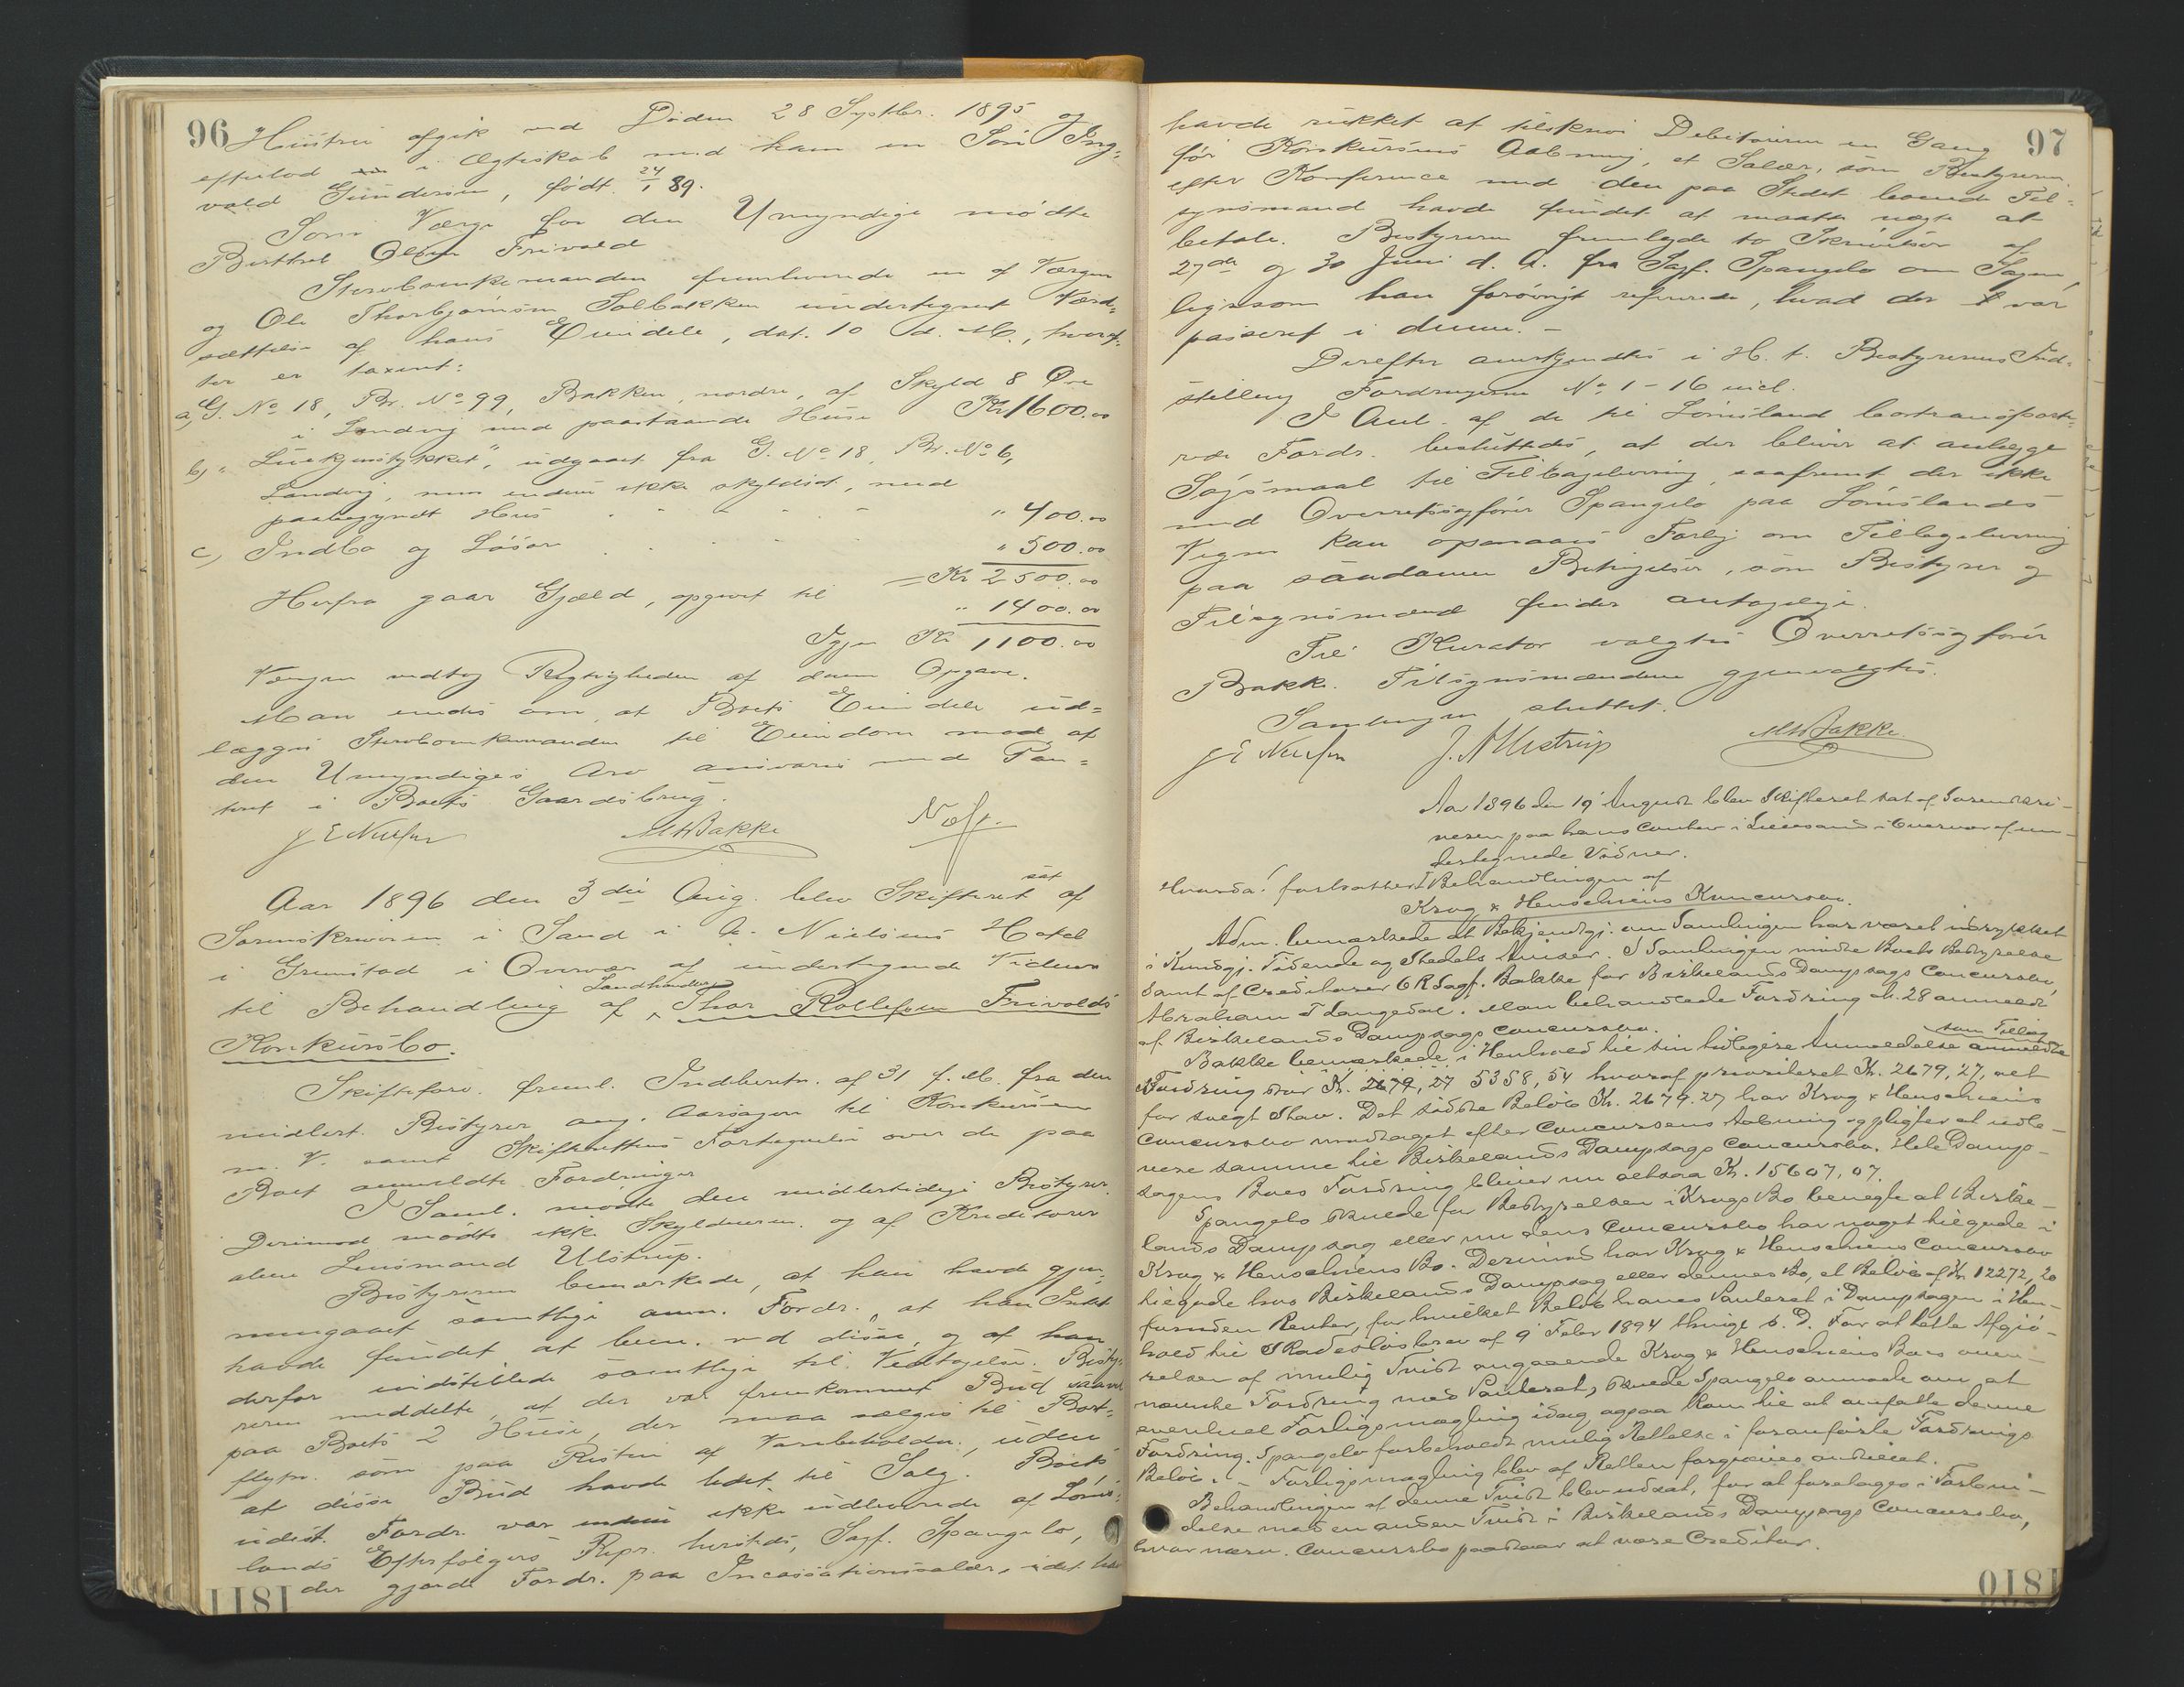 96
Hustru afgik ved Døden 28 Septbr. 1895 og
efterlod i Ægteskab med ham en Søn Ing-
vald Gundersen, født 24/1 89.
Som Værge for den Umyndige mødte
Berthel Olsen Frivold
Stervboenkemanden fremleverede en af Værgen
og Ole Thorbjørnsen Solbakken undertegnet Værd-
sættelse af hans Eiendele, dat. 10 d. M., hvoref-
ter er taxeret:
a, G. No 18, Br. No 99, Bakken, nordre, af Skyld 8 Øre
i Landvig med paastaaende Huse Kr 1600.00
b, " udgaaet fra G. No 18, Br. No 6,
Landvig, men endnu ikke skyldsat, med
paabegyndt Hus " 400.00
c, Indbo og Løsøre " 500.00
= Kr 2500.00
Herfra gaar Gjæld, opgivet til " 1400.00
Igjen Kr 1100.00
Værgen vedtog Rigtigheden af denne Opgave.
Man enedes om, at Boets Eiendele ud-
lægges Stervboenkemanden til Eiendom mod at
den Umyndiges Arv ansvares med Pan-
teret i Boets Gaardsbrug.
J E Nielsen MWBakke
Aar 1896 den 3die Aug. blev Skifteret sat af
Sorenskriveren i Sand i A. Nielsens Hotel
i Grimstad i Overvær af undertegnede Vidner
til Behandling af Landhandler Thor Rollefsen Frivolds
Konkursbo.
Skifteforv. freml. Indberetn. af 31 f. M. fra den
midlert. Bestyrer ang. Aarsagen til Konkursen
m. V. samt Skifterettens Fortegnelse over de paa
Boet anmeldte Fordringer
I Saml. mødte den midlertidige Bestyrer.
Derimod mødte ikke Skyldneren. og af Kreditorer
alene Lensmand Ulstrup.
Bestyreren bemærkede, at han havde gjen-
nemgaaet samtlige anm. Fordr., at han Intet
havde fundet at bem. ved disse, og at han
derfor indstillede samtlige til Vedtagelse. Besty-
reren meddelte, at der var fremkommet Bud saavel
paa Boets 2 Huse, der maa sælges til Bort-
flytn. som paa Resten af Varebeholdn., uden
at disse Bud havde ledet til Salg. Boets
udest. Fordr. var ikke udleverede af Løms-
lands Efterfølgers Repr. hersteds, Sagf. Spangelo,
der gjorde Fordr. paa Incassationssalær, idet han
1811
97
havde rukket at tilskrive Debitorerne en Gang
før Konkursens Aabning, et Salær, som Bestyreren
efter Konference med den paa Stedet boende Til-
synsmand havde fundet at maatte nægte at
betale. Bestyreren fremlagde to Skrivelser af
27de og 30 Juni d. A. fra Sagf. Spangelo om Sagen,
ligesom han forøvrigt refererede, hvad der var
passeret i denne. –
Derefter anerkjendtes i H. t. Bestyrerens Ind-
stilling Fordringerne No 1 – 16 incl.
I Anl. af de til Lømsland borttransporte-
rede Fordr. besluttedes, at der bliver at anlægge
Søgsmaal til Tilbagelevering, saafremt der ikke
med Overretssagfører Spangelo paa Lømslands
Vegne kan opnaaes Forlig om Tilbagelevering
paa saadanne Betingelser, som Bestyrer og
Tilsynsmænd finder antagelige.
Til Kurator valgtes Overretssagfører
Bakke. Tilsynsmændene gjenvalgtes.
Samlingen sluttet.
J E Nielsen J. A Ulstrup MWBakke
Aar 1896 den 19 August blev Skifteret sat af Sorenskri-
veren paa hans Contor i Lillesand i Overvær af un-
dertegnede Vidner.
Hvorda! fortsattes Behandlingen af
Krog & Henschiens Koncursbo.
Adm. bemærkede at Bekjendtgj. om Samlingen har været indrykket
i Kundgj. Tidende og Stedets Aviser. I Samlingen mødte Boets Bestyrelse
samt af Creditorer O R Sagf. Bakke for Birkelands Dampsags Concursbo,
Abraham T Langedal. Man behandlede Fordring No. 28 anmeldt
af Birkelands Dampsags Concursbo.
Bakke bemærkede i Henhold til sin tidligere Anmeldelse som Tillæg
Fordring stor Kr. 5358,54 hvoraf prioriteret Kr. 2679,27, alt
for solgt Stav. Det sidste Beløb Kr. 2679.27 har Krog & Henschiens
Concursbo modtaget efter Concursens Aabning og pligter at udle-
vere samme til Birkelands Dampsags Concursbo. Hele Damp-
sagens Boes Fordring bliver nu altsaa Kr. 15607,07.
Spangelo skulde for Bestyrelsen i Krogs Bo benegte at Birke-
lands Dampsag eller nu dens Concursbo har noget tilgode i
Krog & Henschiens Bo. Derimod har Krog & Henschiens Concursbo
tilgode hos Birkelands Dampsag eller dennes Bo, et Beløb af Kr 12272,20
foruden Renter, for hvilket Beløb haves Panteret i Dampsagen i Hen-
hold til Skadesløsbrev af 9 Febr 1894 thingl. s. D. For at lette Afgjø-
relsen af mulig Tvist angaaende Krog & Henschiens Boes oven-
nævnte Fordring med Panteret, skulde Spangelo anmode om at
eventuel Forligsmægling idag ogsaa kom til at omfatte denne
Fordring. Spangelo forbeholdt mulig Rettelse i foranførte Fordrings
Beløb. – Forligsmægling blev af Retten forgjæves anstillet.
Behandlingen af denne Tvist blev udsat, for at foretages i Forbin-
delse med en anden Tvist i Birkelands Dampsags Concursbo,
hvor nærv. Concursbo paastaar at være Creditor.
1810